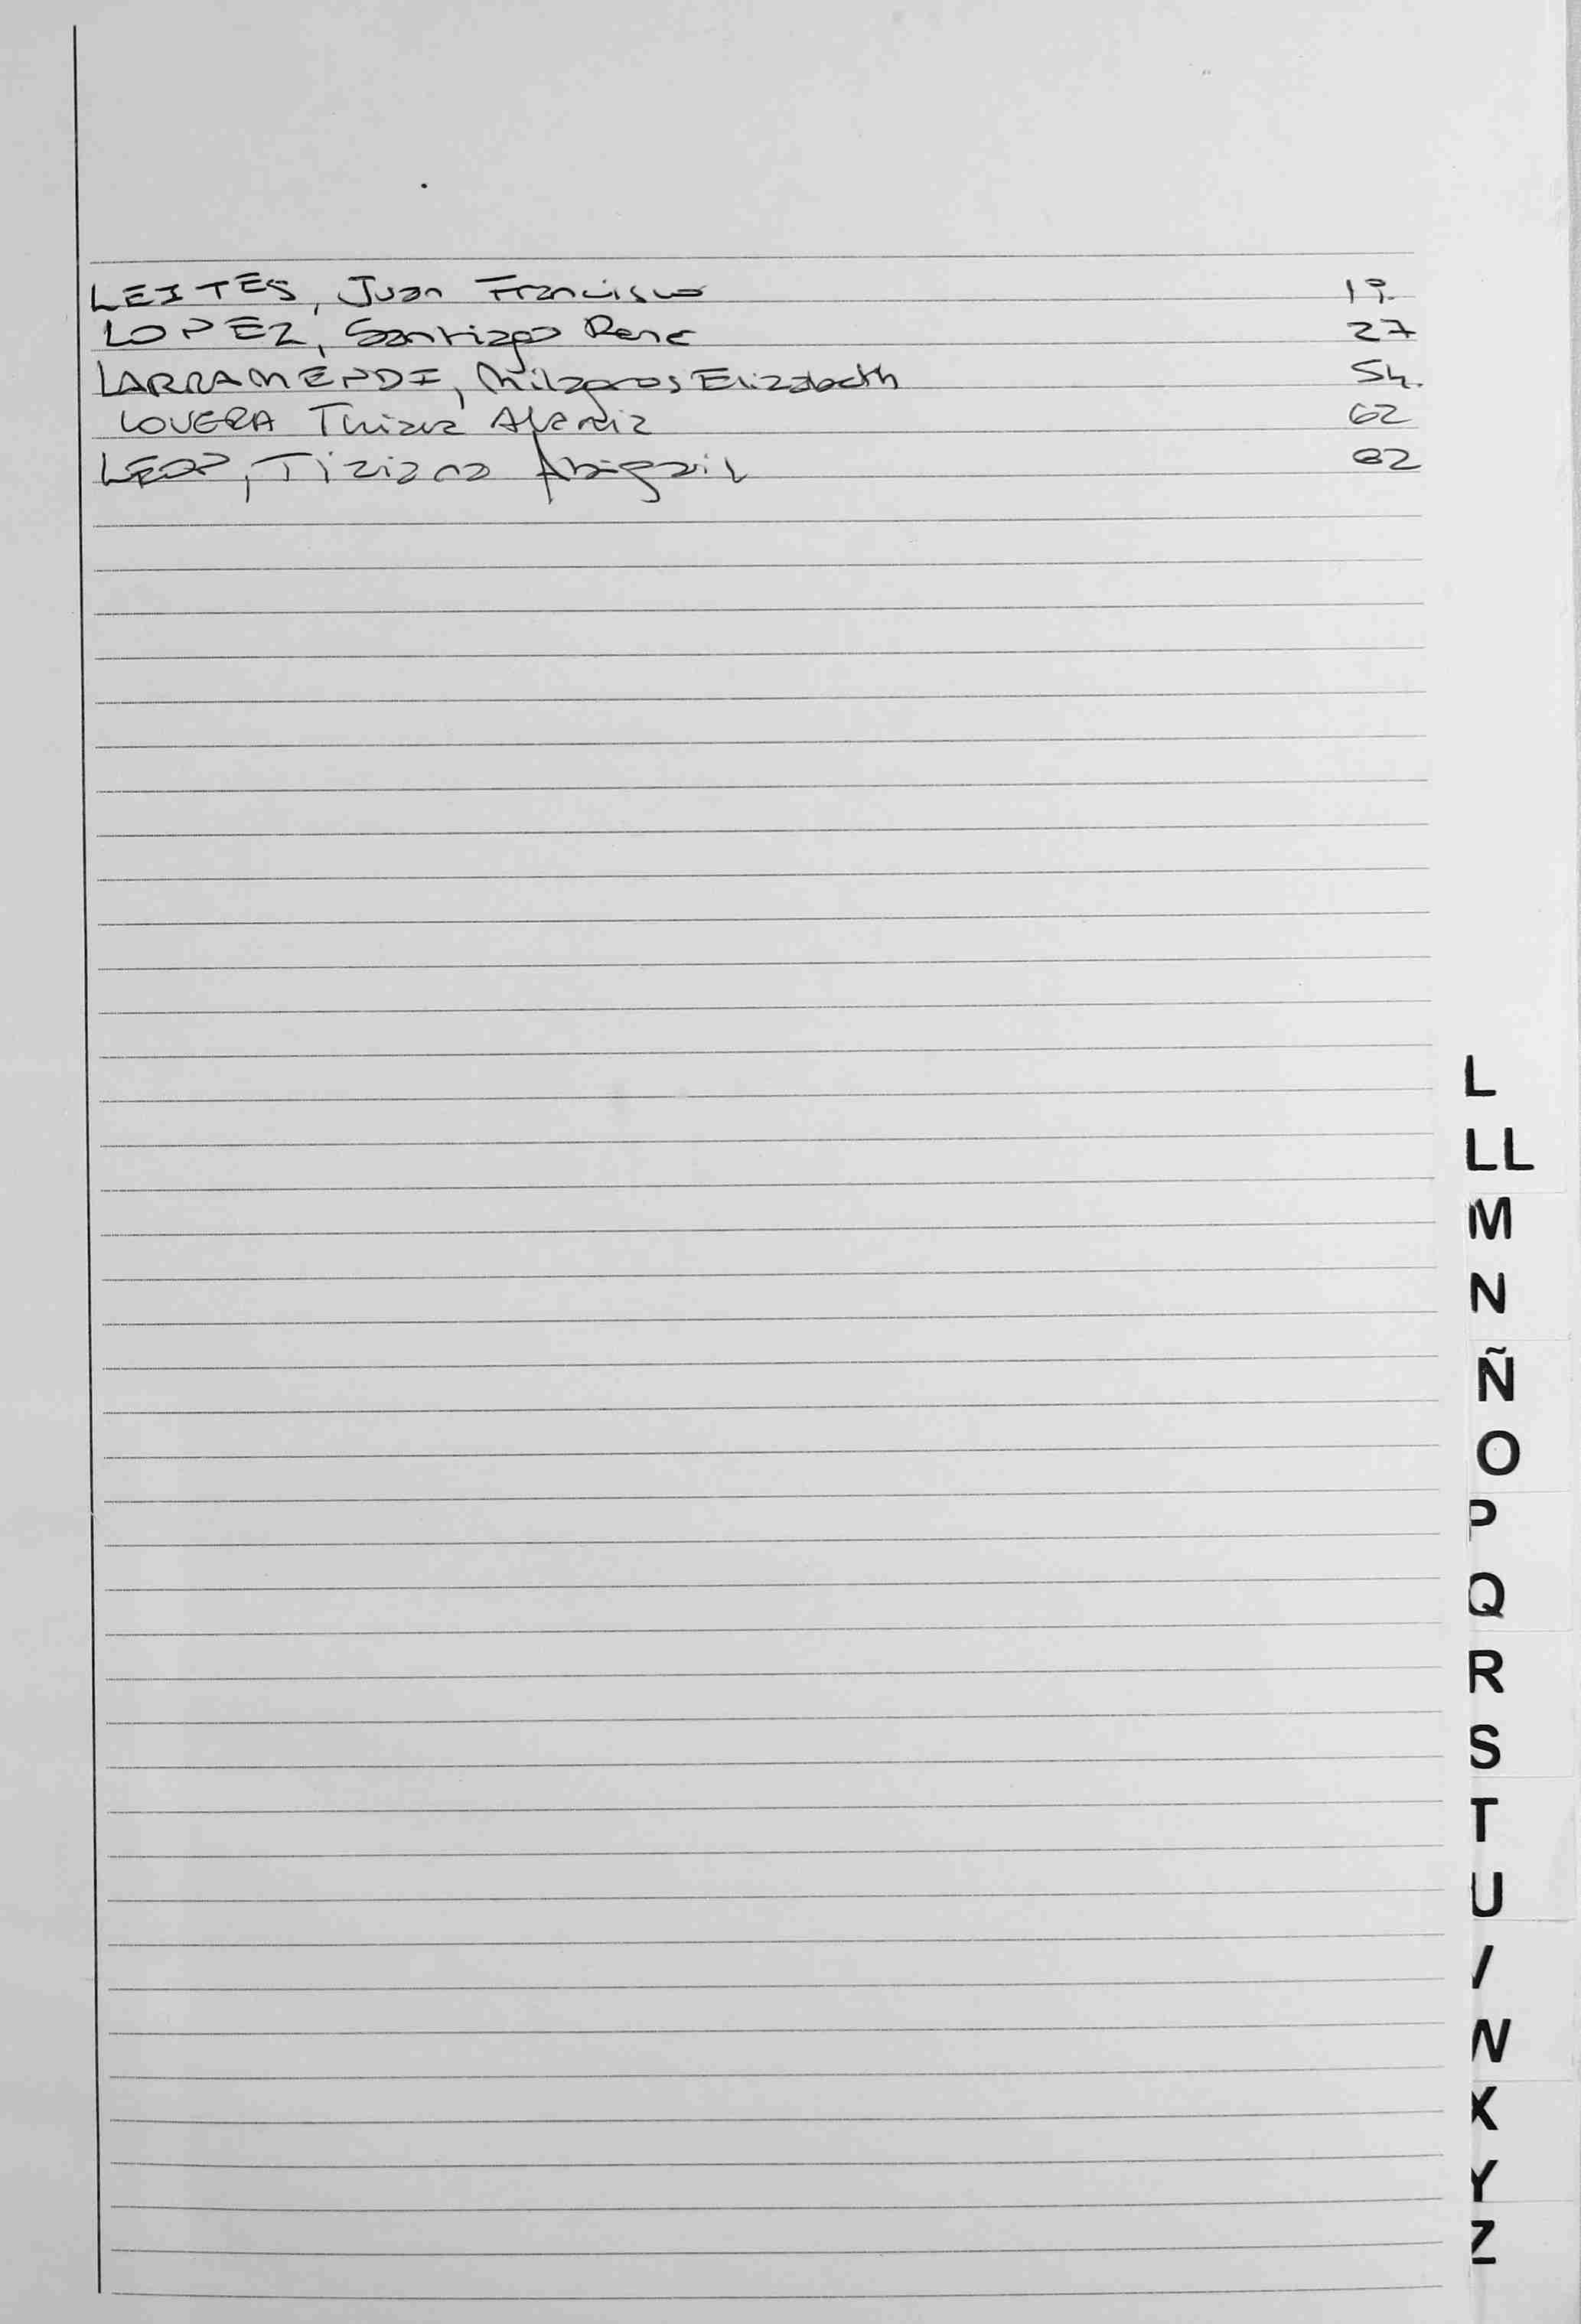 LEITES, Juan Francisco 19.
LOPEZ, Santiago Rene 27
LARRAMENDI, Milagros Elizabeth 54.
LOVERA Thiara 62
LEON, Tiziana Abigail 82
L
LL
M
N
Ñ
O
P
Q
R
S
T
U
V
W
X
Y
Z